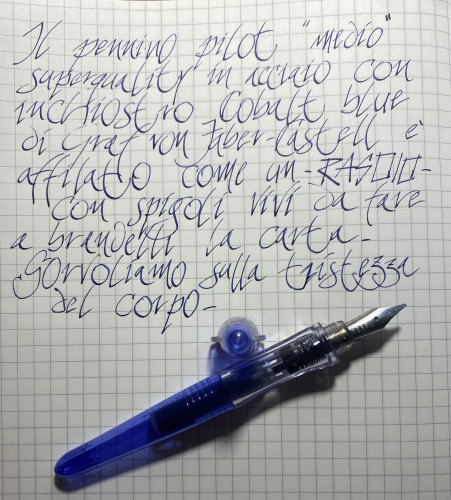 Il pennino pilot "medio"
superquality in acciaio con
inchiostro Cobalt blue
di Graf von Faber-Castell è
affilato come un -RASOIO-
con spigoli vivi da fare
a brandelli la carta-
Sorvoliamo sulla tristezza
del corpo-